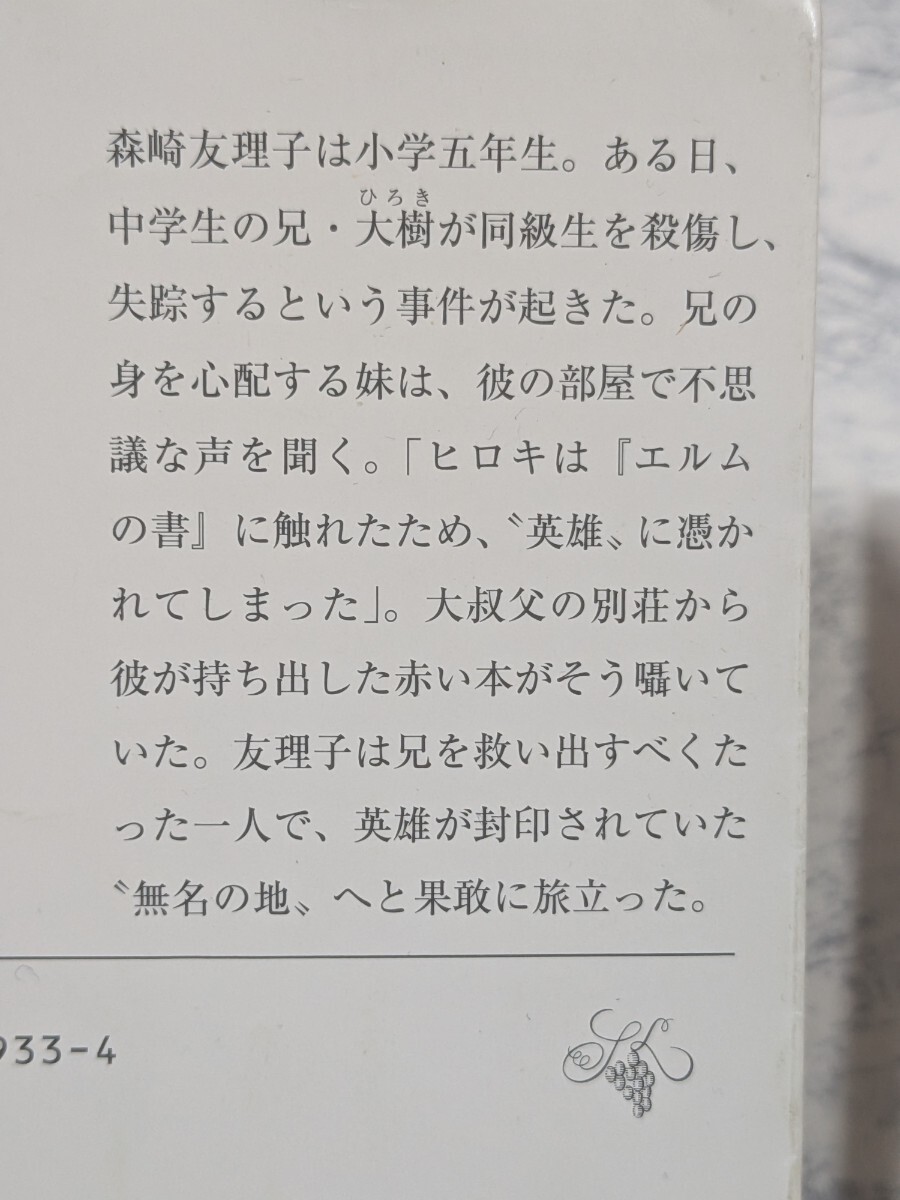 森崎友理子は小学五年生。ある日、
ひろき
中学生の兄・大樹が同級生を殺傷し、
失踪するという事件が起きた。兄の
身を心配する妹は、彼の部屋で不思
議な声を聞く。「ヒロキは『エルム
の書』に触れたため、〝英雄〟に憑か
れてしまった」。大叔父の別荘から
彼が持ち出した赤い本がそう囁いて
いた。友理子は兄を救い出すべくた
った一人で、英雄が封印されていた
〝無名の地〟へと果敢に旅立った。
933-4
SK